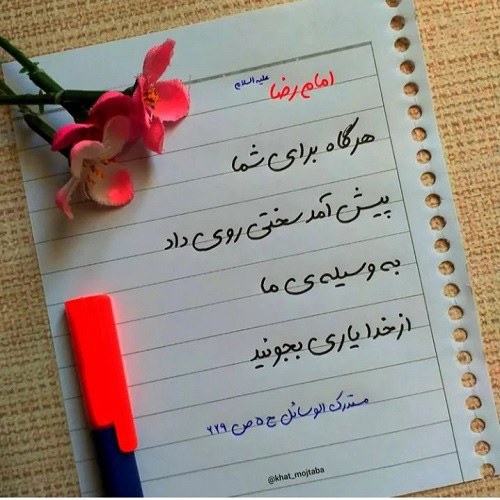 امام رضا علیه السلام
هر گاه برای شما
پیش آمد سختی روی داد
به وسیله ی ما
از خدا یاری بجوئید
مستدرک الوسائل ج ۵ ص ۲۲۹
@khat_mojtaba